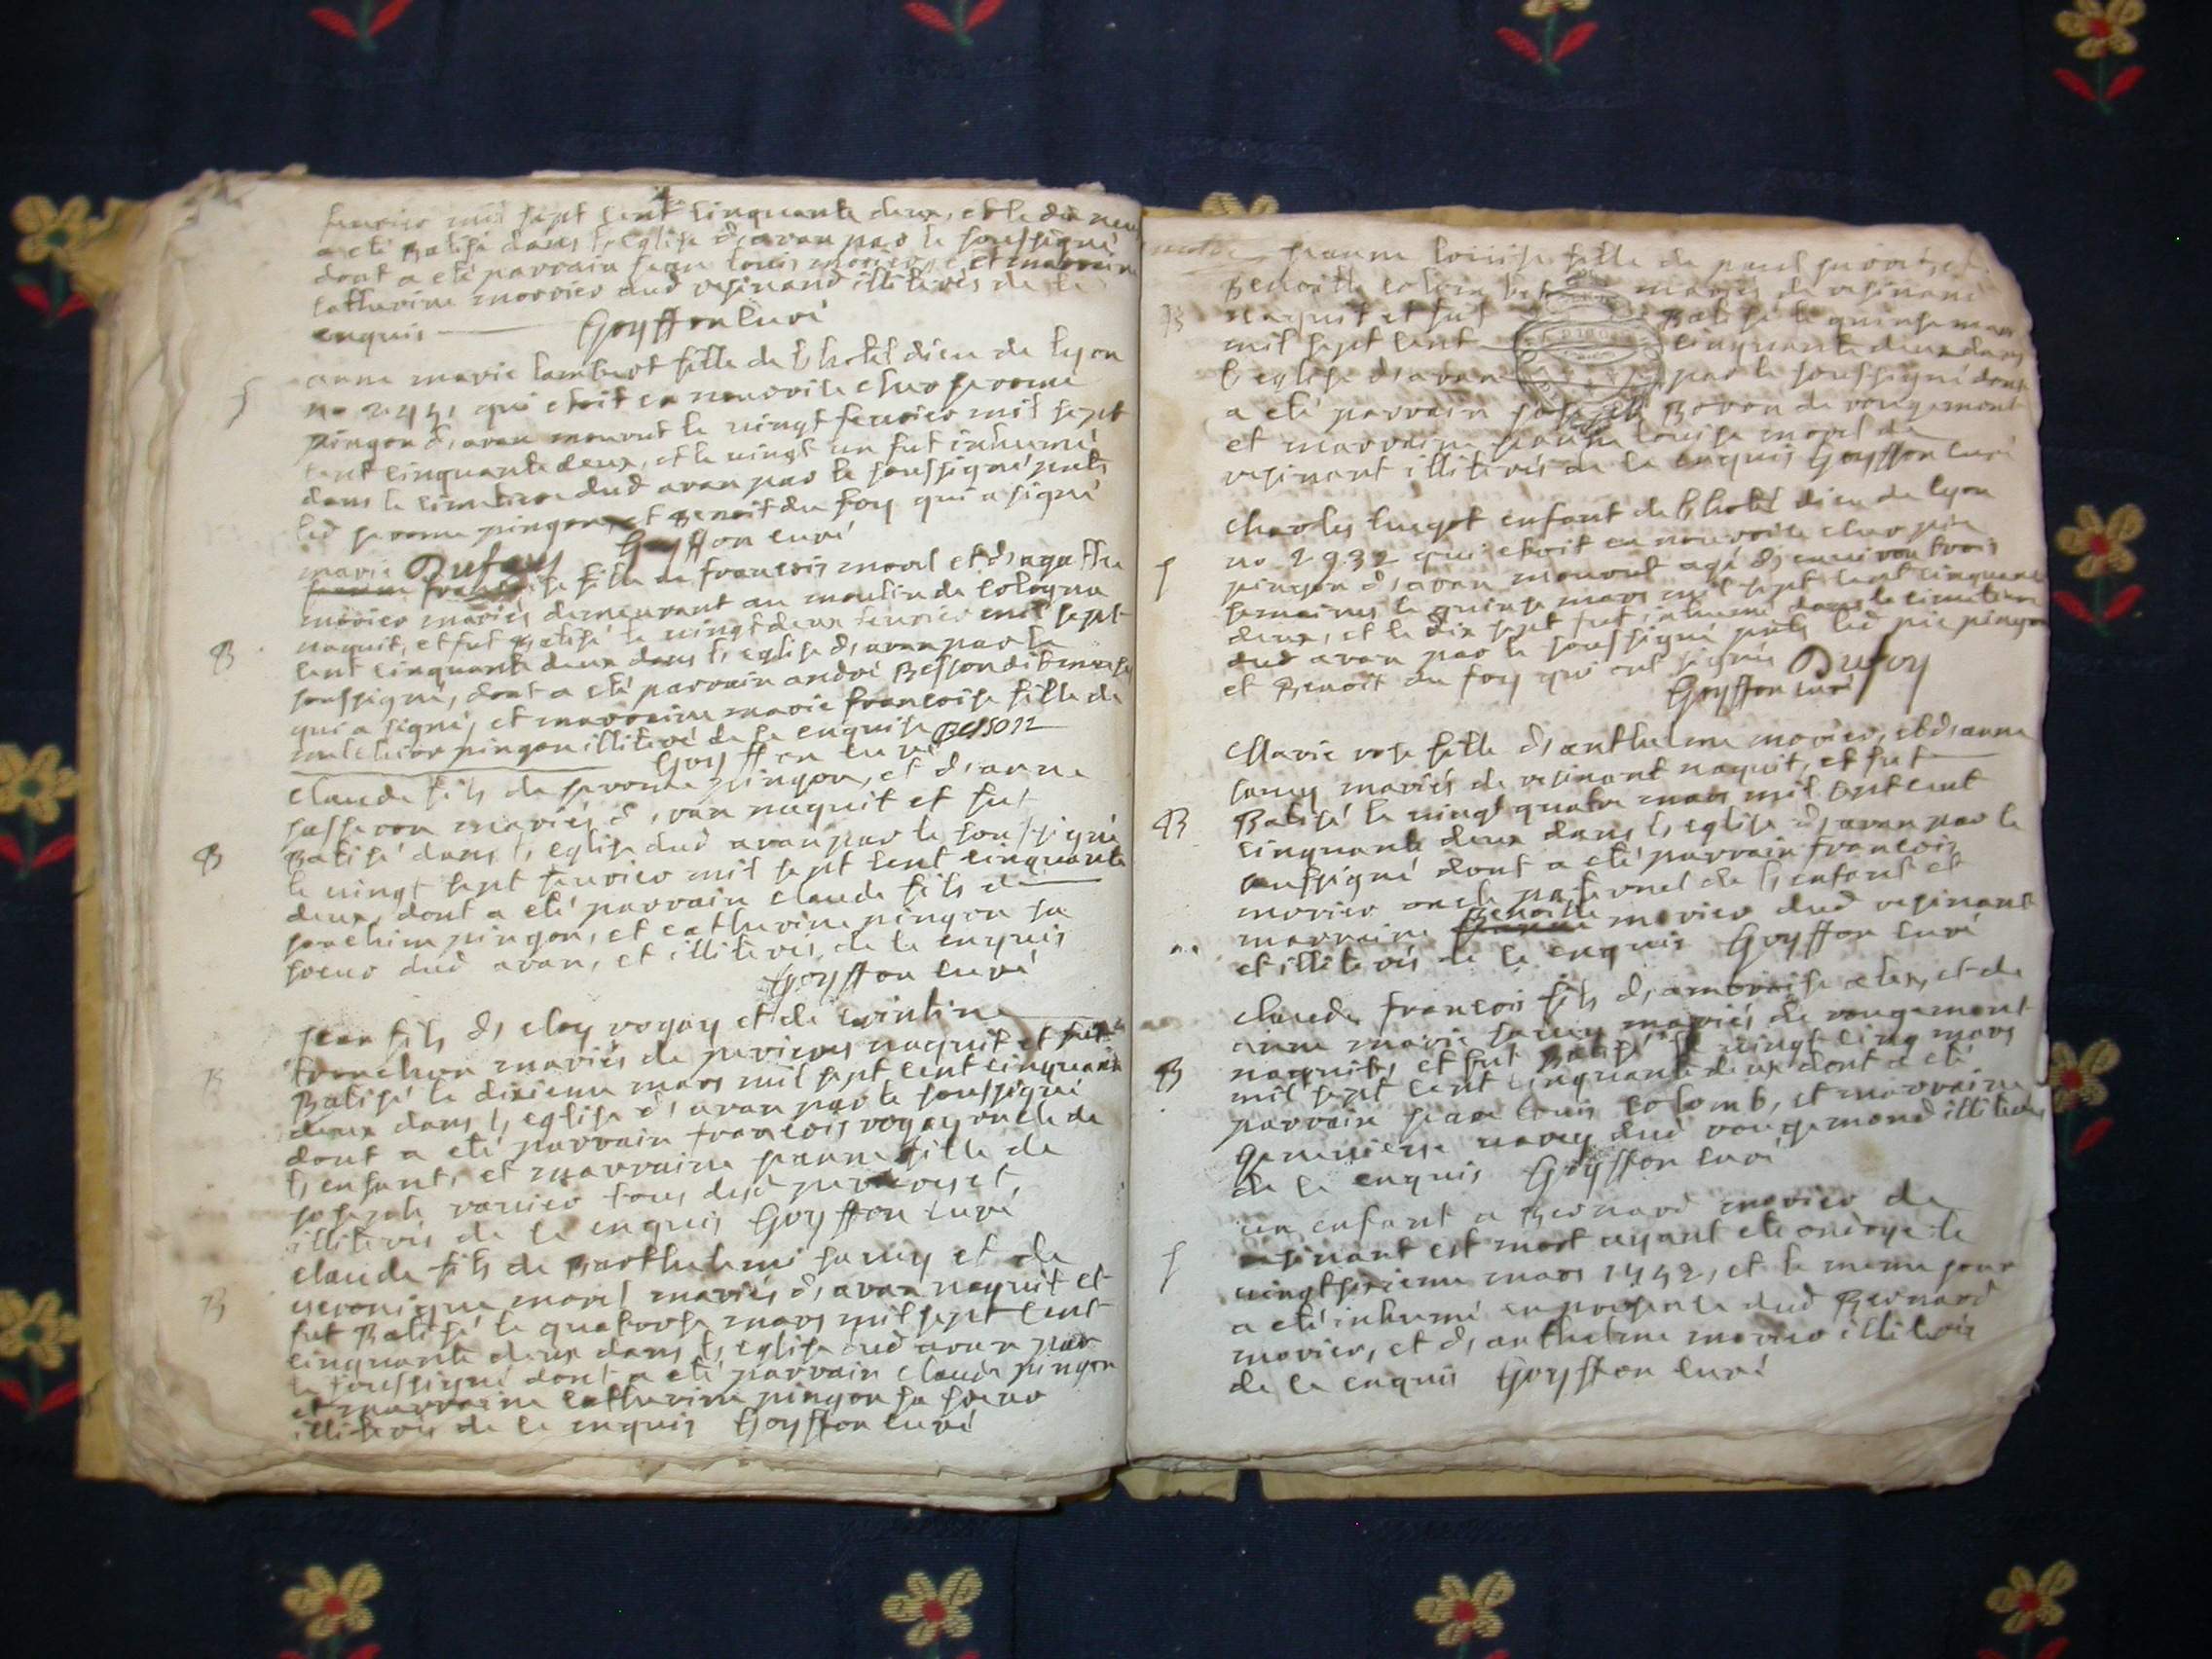 fevrier mil sept cent cinquante deux, et le dix neuf
a eté Batisé dans l'eglise d'aran par le soussigné
dont a eté parrain jean louis morier, et marraine
catherine morrier dud resinand illiterés de ce
enquis Goyffon curé
anne marie lambert fille de l'hotel dieu de lyon
no qui etoit en nourrice cher jerome
pingon d'aran mourut le vingt fevrier mil sept
cent cinquante deux, et le vingt un fut inhumé
dans le cimetiere dud aran par le soussigné pnts
led jerome pingon, et Benoit du foy qui a signé
Dufoy Goyffon curé
marie fille de francois morel et d'agathe
morier mariés demeurant au moulin de cologna
naquit, et fut Batisé le vingt deux fevrier mil sept
cent cinquante deux dans l'eglise d'aran par le
soussigné, dont a eté parrain andré Besson dit
qui a signé, et marraine marie francoise fille de
melchior pingon illiteré de ce enquise Besson
Goyffon curé
claude fils de jerome pingon, et d'anne
mariés d'aran naquit et fut
B Batisé dans l'eglise dud aran par le soussigné
le vingt sept fevrier mil sept cent cinquante
deux, dont a eté parrain claude fils de
joachim pingon, et catherine pingon sa
soeur dud aran, et illiterés de ce enquis
Goyffon curé
jean fils d'eloy rogay et de
mariés de naquit et fut
B Batisé le dixieme mars mil sept cent cinquante
deux dans l'eglise d'aran par le soussigné
dont a eté parrain francois rogay oncle de
l'enfant, et marraine jeanne fille de
joseph tous dud
illiterés de ce enquis Goyffon curé
claude fils de Barthelemi jarcy et de
veronique morel mariés d'aran naquit et
B fut Batisé le quatorse mars mil sept cent
cinquante deux dans l'eglise dud aran par
le soussigné dont a eté parrain claude pingon
et marraine catherine pingon sa soeur
illiterés de ce enquis Goyffon curé
jeanne louise fille de paul et
Benoitte mariés de resinand
B naquit et fut Batisé le quinse mars
mil sept cent cinquante deux dans
l'eglise d'aran par le soussigné dont
a eté parrain joseph Boron de rougemont
et marraine jeanne louise morel de
resinant illiterés de ce enquis Goyffon curé
charles enfant de l'hotel dieu de lyon
no 2932 qui etoit en nourrice cher pie
pingon d'aran mourut agé d'environ trois
semaines le quinse mars mil sept cent cinquante
deux, et le dix sept fut inhumé dans le cimetiere
dud aran par le soussigné pnts led pie pingon
et Benoit du foy qui ont signés Dufoy
Goyffon curé
Marie rose fille d'anthelme morier, et d'anne
jarcy mariés de resinant naquit, et fut
B Batisé le vingt quatre mars mil sept cent
cinquante deux dans l'eglise d'aran par le
soussigné dont a eté parrain francois
morier oncle paternel de l'enfant et
marraine Benoitte morier dud resinant
et illiterés de ce enquis Goyffon curé
claude francois fils d'ambroise et de
anne marie jarcy mariés de rougemont
B naquit, et fut Batisé le vingt cinq mars
mil sept cent cinquante deux dont a eté
parrain jean louis colomb, et marraine
genevieve dud rougemond illiterés
de ce enquis Goyffon curé
un enfant a Bernard morier de
resinant est mort ayant eté ondoye le
vingt mars 1752, et le meme jour
a eté inhumé en presence dud Bernard
morier, et d'anthelme morier illiterés
de ce enquis Goyffon curé